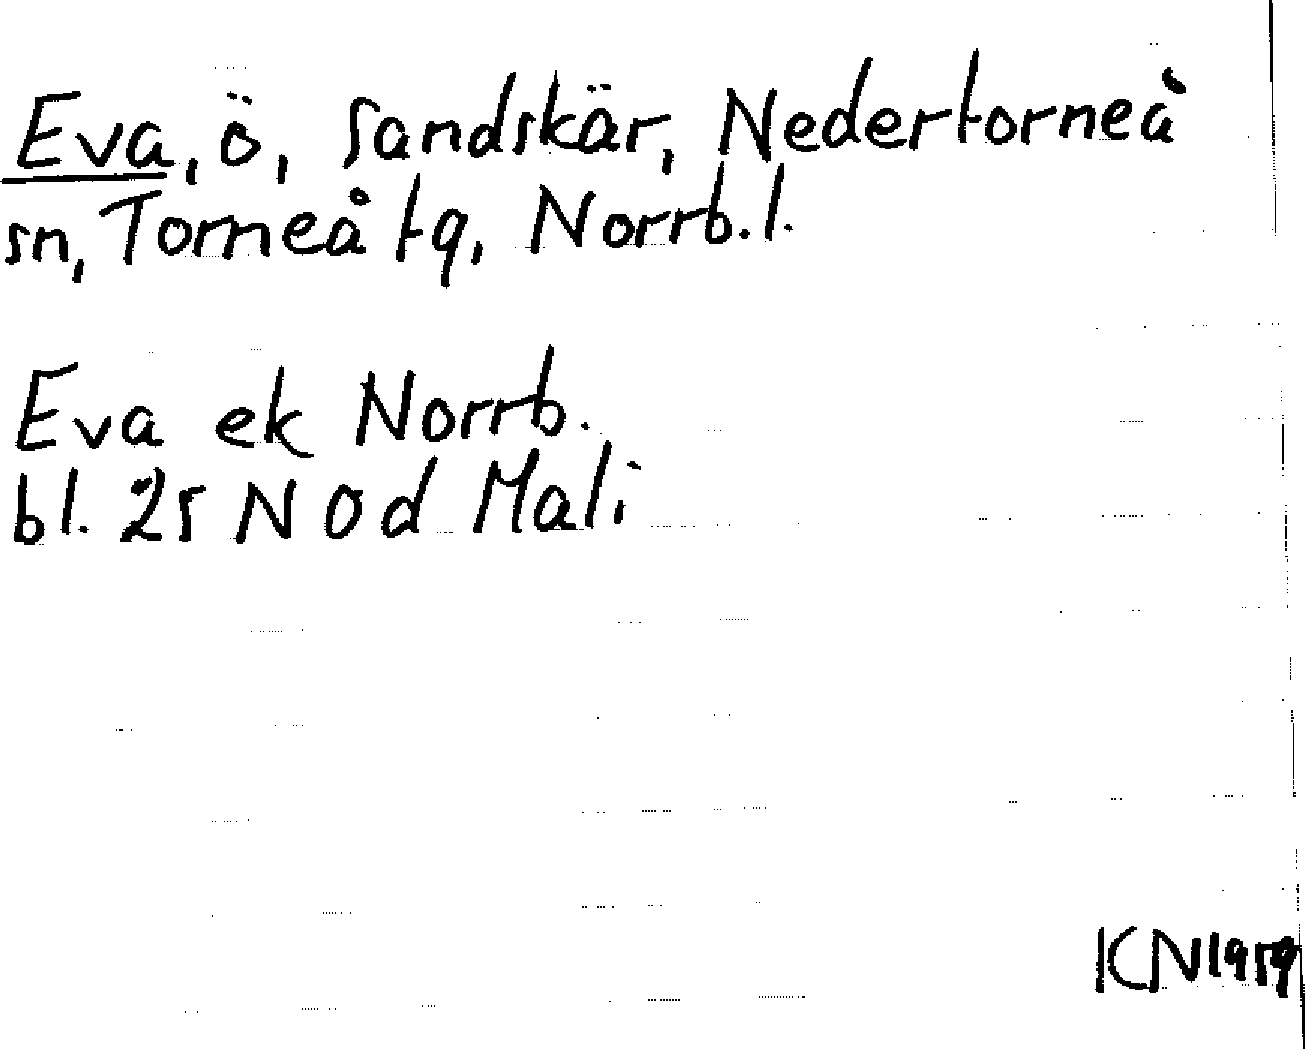 Eva, ö, Sandskär, Nedertorneå
sn, Torneå tg, Norrb. l.
Eva ek Norrb.
bl. 25 N O d Mali
KN 1959